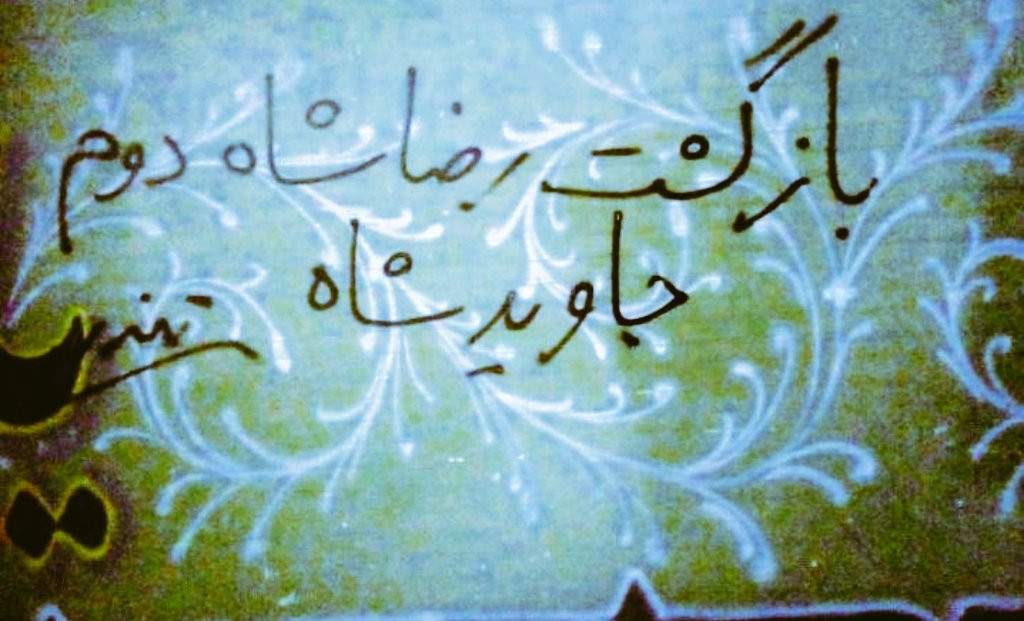 بازگشت رضا شاه دوم
جاوید شاه